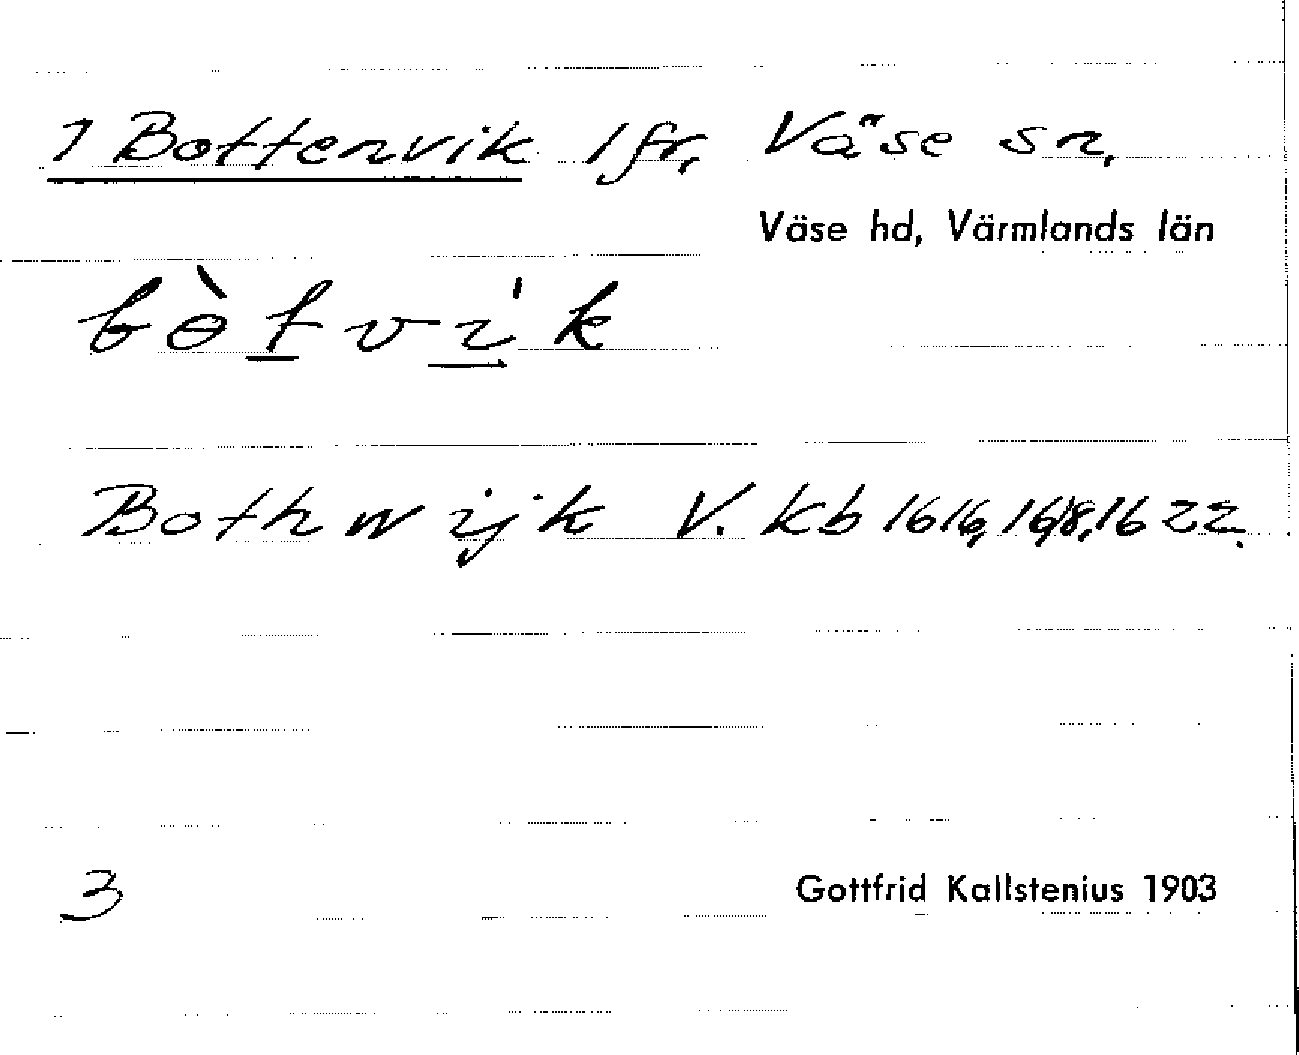 1 Bottenvik 1 fr, Väse sn,
Väse hd, Värmlands län
bɵ̀tvi̍k
Bothwijk V. Kb 1616, 1618, 1622.
3
Gottfrid Kallstenius 1903